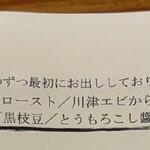 つずつ最初にお出ししており
ロースト／川津エビから
「黒枝豆／とうもろこし醬